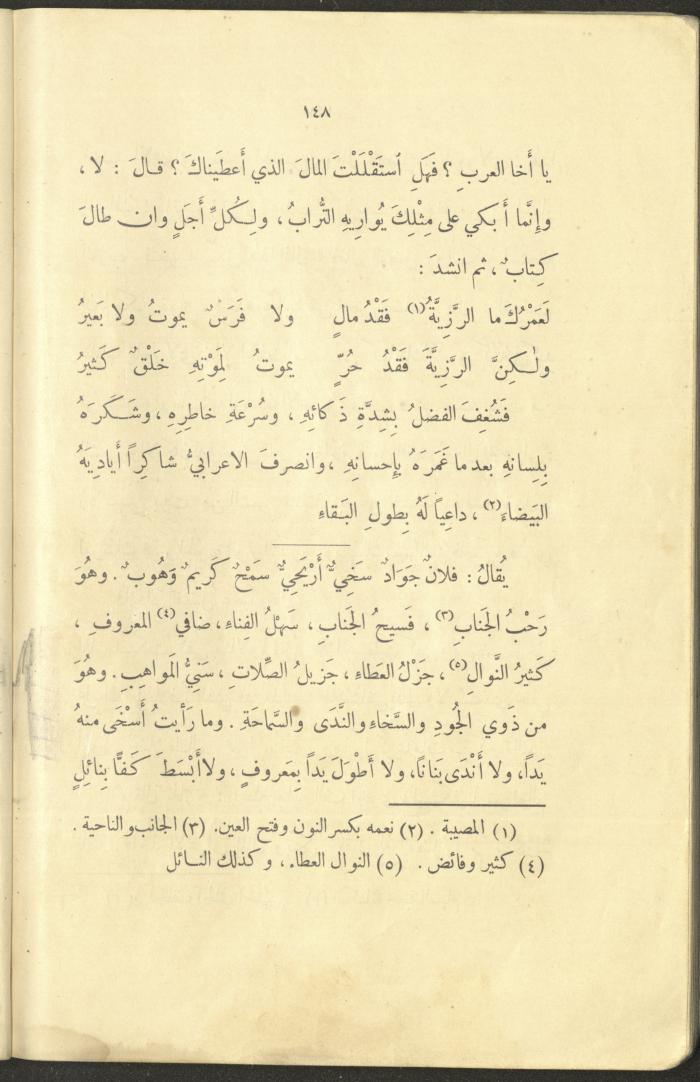 ١٤٨
يا أَخا العربِ ؟ فَهَلِ ٱستَقْلَلْتَ المالَ الذي أَعطَيناكَ ؟ قالَ : لا ،
وإِنَّما أَبكي على مِثْلِكَ يُوارِيهِ التُّرابُ ، ولِكُلِّ أَجَلٍ وان طالَ
كِتابٌ ، ثم انشدَ :
لَعَمْرُكَ ما الرَّزِيَّةُ (١) فَقْدُ مالٍ ولا فَرَسٌ يموتُ ولا بَعيرُ
ولٰكِنَّ الرَّزِيَّةَ فَقْدُ حُرٍّ يموتُ لِمَوْتِهِ خَلْقٌ كَثيرُ
فَشُغِفَ الفضلُ بِشِدَّةِ ذَكائهِ ، وسُرْعَةِ خاطِرِهِ ، وشَكَرَهُ
بِلِسانهِ بعدما غَمَرَهُ بإِحسانهِ ، وانصرفَ الاعرابيُّ شاكِراً أَيادِيَهُ
البَيضاءَ (٢) ، داعِياً لَهُ بِطولِ البَقاءِ
يُقالُ : فلانٌ جَوَادٌ سَخِيٌّ أَرْيَحِيٌّ سَمْحٌ كَريمٌ وَهُوبٌ . وهُوَ
رَحْبُ الجَنابِ (٣) ، فَسيحُ الجَنابِ ، سَهْلُ الفِناءِ ، ضافي (٤) المعروفِ ،
كَثيرُ النَّوالِ (٥) ، جَزْلُ العَطاءِ ، جَزيلُ الصِّلاتِ ، سَنِيُّ المَواهِبِ . وهُوَ
من ذَوي الجُودِ والسَّخاءِ والنَّدَى والسَّماحَةِ . وما رَأَيتُ أَسْخَى منهُ
يَداً ، ولا أَنْدَى بَنانًا ، ولا أَطْوَلَ يَداً بِمَعروفٍ ، ولا أَبْسَطَ كَفًّا بِنائِلٍ
(١) المصيبة . (٢) نعمه بكسر النون وفتح العين . (٣) الجانب والناحية .
(٤) كثير وفائض . (٥) النوال العطاء ، وكذلك النائل